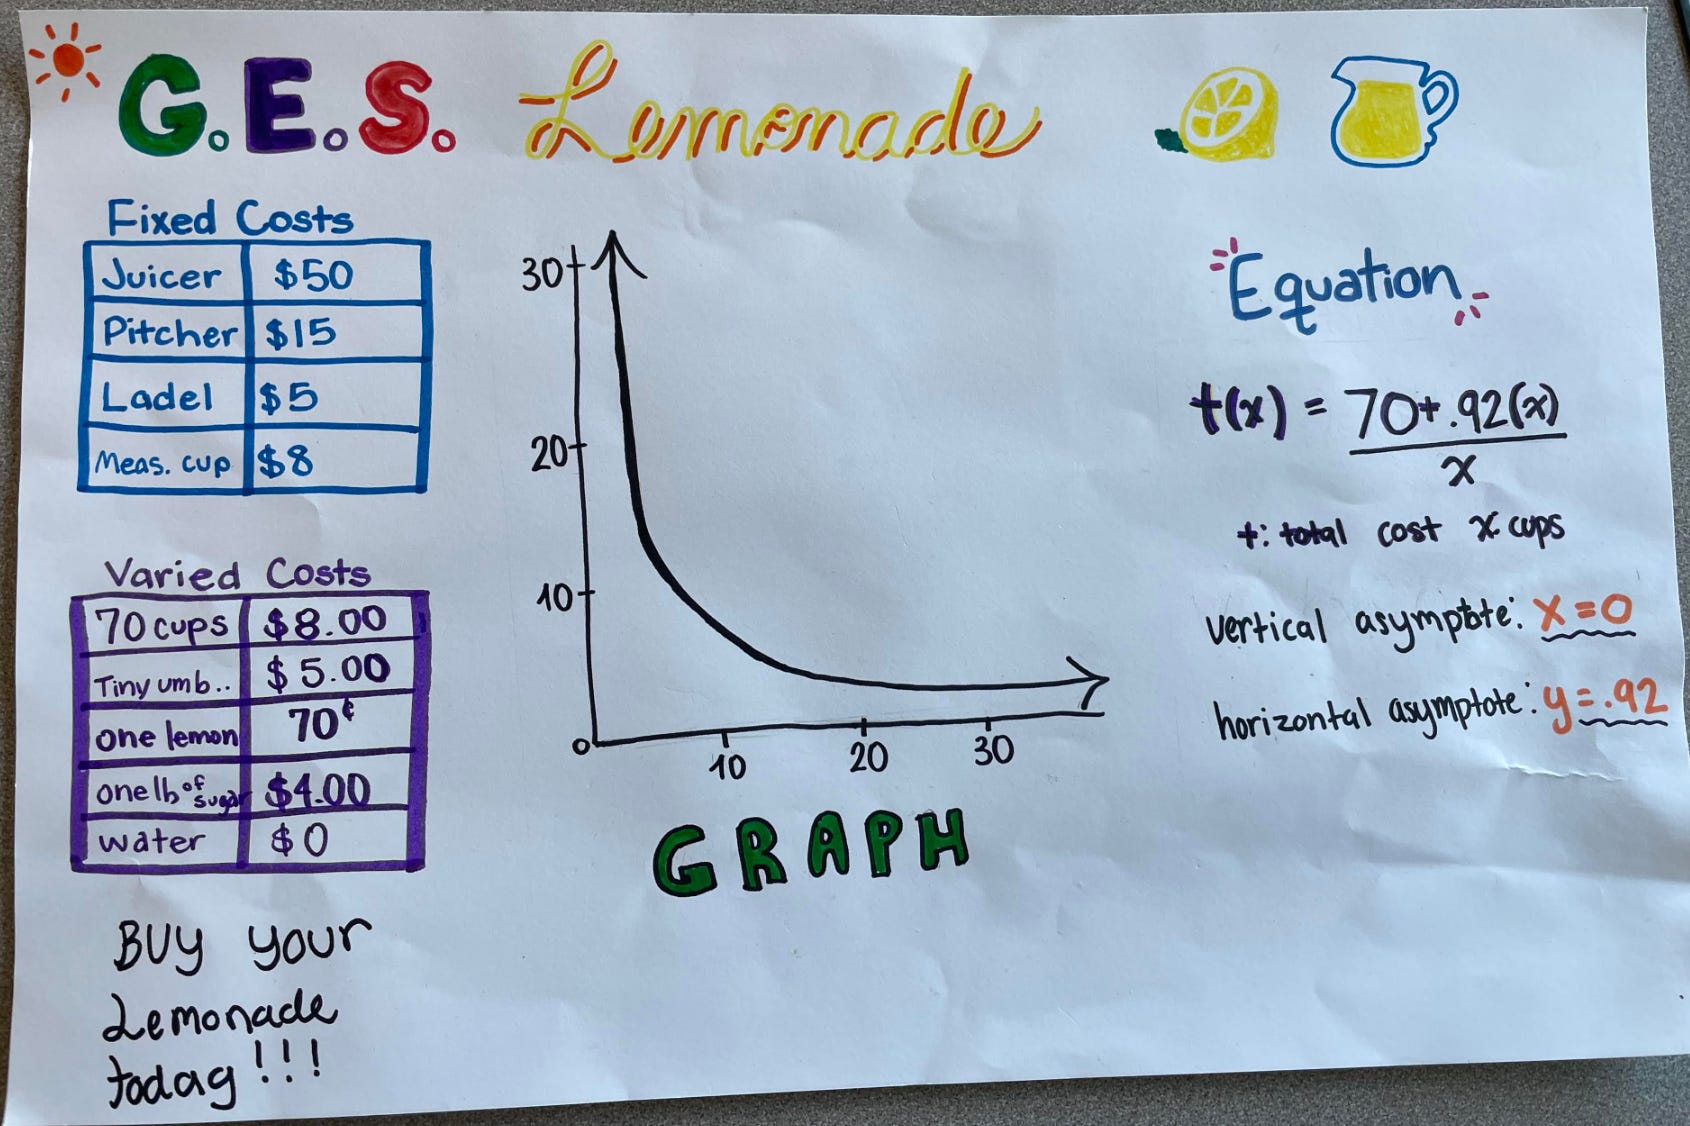 G.E.S. Lemonade
Fixed Costs
Juicer $50
Pitcher $15
Ladel $5
Meas. cup $8
Varied Costs
70 cups $8.00
Tiny umb.. $5.00
one lemon 70¢
one lb of sugar $4.00
water $0
BUY your
Lemonade
today!!!
30
20
10
0
10 20 30
GRAPH
Equation
t(x) = 70+.92(x)
x
t: total cost x: cups
vertical asymptote: x=0
horizontal asymptote: y=.92